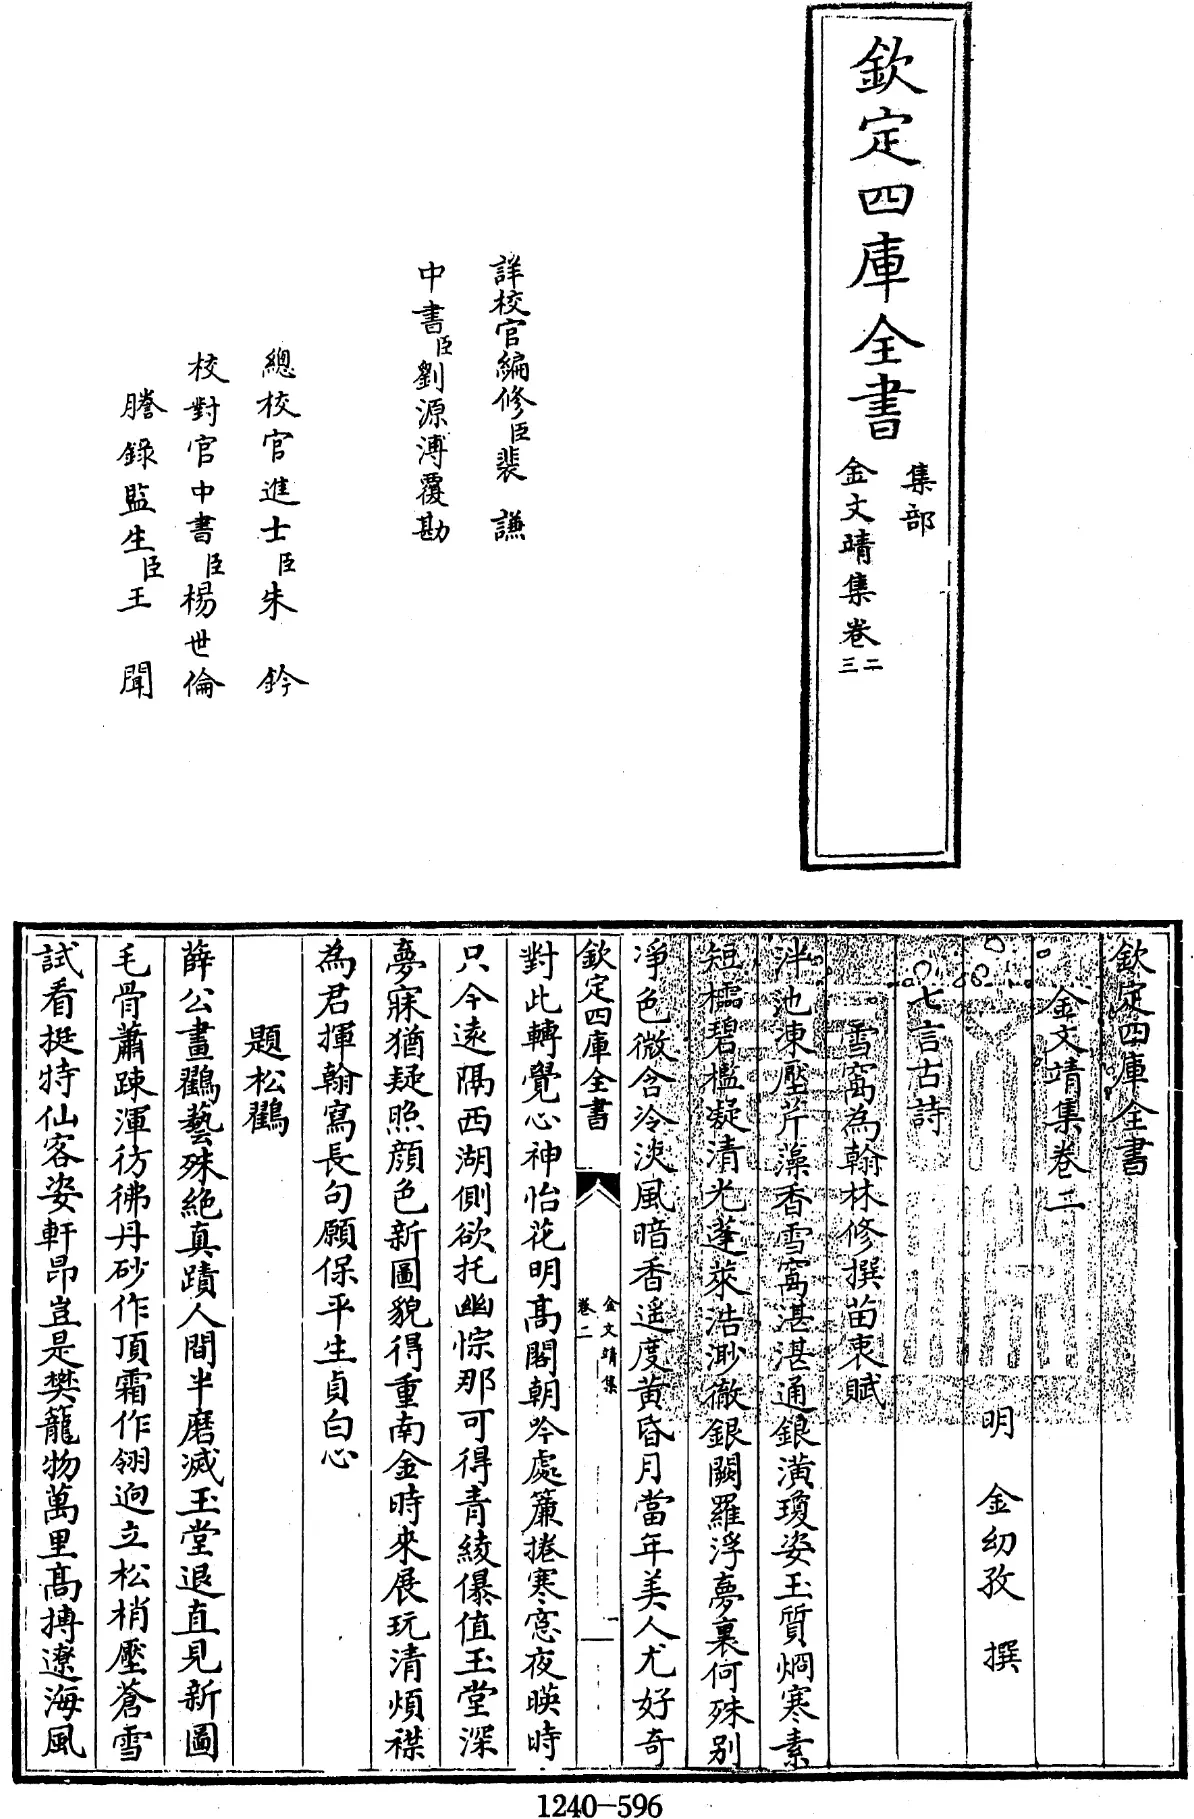 欽定四庫全書
集部
金文靖集卷二三
詳校官編修臣裴謙
中書臣劉源溥覆勘
總校官進士臣朱鈐
校對官中書臣楊世倫
謄錄監生臣王聞
欽定四庫全書
金文靖集卷二
明金幼孜撰
七言古詩
雪窩為翰林修撰苗衷賦
泮池凍壓芹藻香雪窩湛湛通銀潢瓊姿玉質烱寒素
短櫺碧檻凝清光蓬萊浩渺徹銀闕羅浮夢裏何殊别
淨色微含冷淡風暗香遥度黄昏月當年美人尤好奇
欽定四庫全書
金文靖集
卷二
一
對此轉覺心神怡花明髙閣朝吟處簾捲寒窓夜暎時
只今遠隔西湖側欲托幽悰那可得青綾儤值玉堂深
夢寐猶疑照顔色新圖貌得重南金時來展玩清煩襟
為君揮翰寫長句願保平生貞白心
題松鸛
薛公畫鸛藝殊絶真蹟人間半磨滅玉堂退直見新圖
毛骨蕭踈渾彷彿丹砂作頂霜作翎逈立松梢壓蒼雪
試看挺特仙客姿軒昂豈是樊籠物萬里髙搏遼海風
1240-596